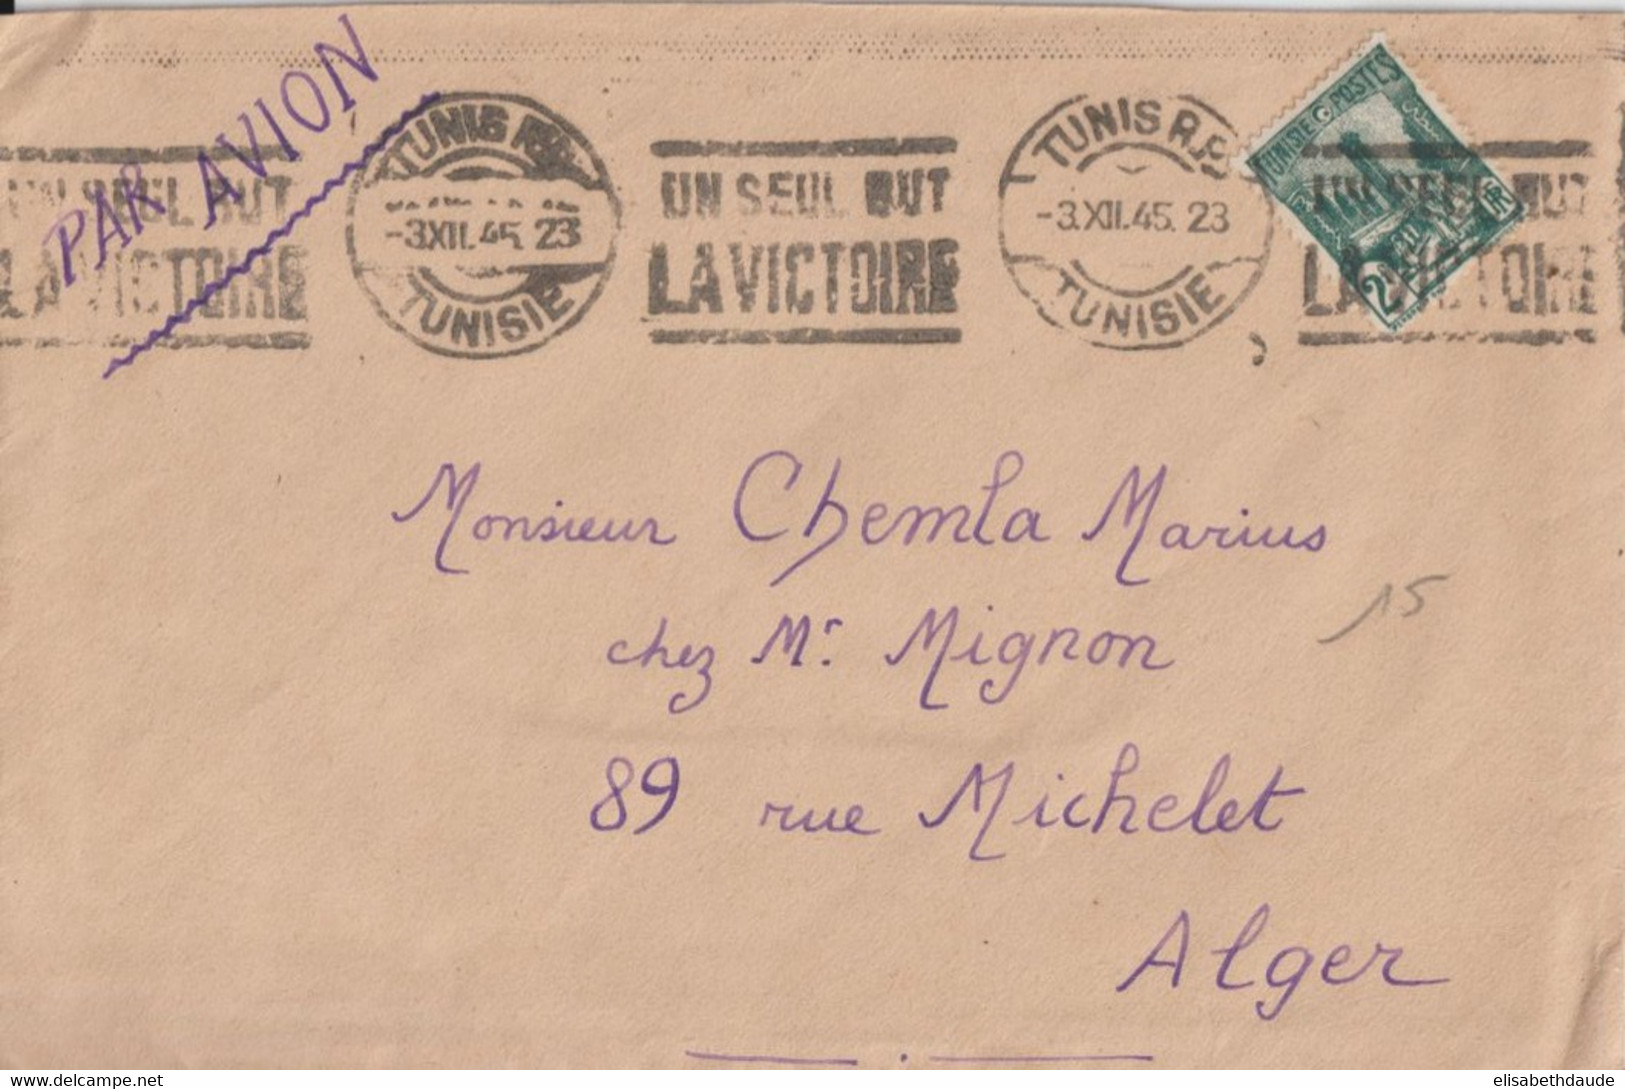 PAR AVION
TUNIS R.P.
-3XII.45. 23
TUNISIE
UN SEUL BUT
LA VICTOIRE
TUNIS R.P.
-3.XII.45. 23
TUNISIE
UN SEUL BUT
LA VICTOIRE
UN SEUL BUT
LA VICTOIRE
TUNISIE POSTES
2 FR
Monsieur Chemla Marius
15
chez Mr. Mignon
89 rue Michelet
Alger
www.delcampe.net
elisabethdaude